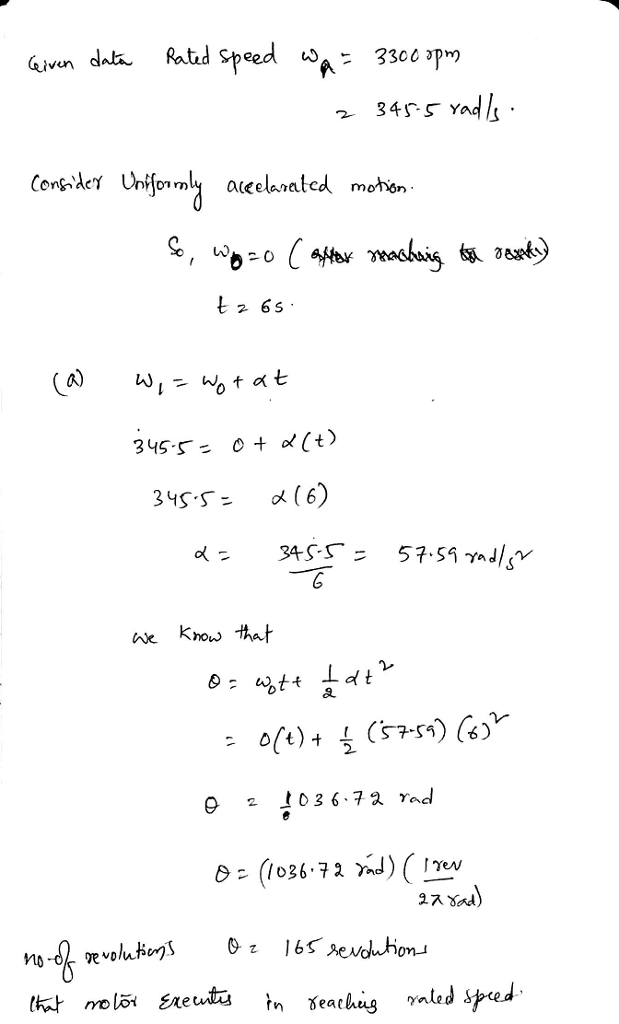 Given data Rated Speed ω_R = 3300 rpm
= 345.5 rad/s.
Consider Uniformly accelarated motion.
So, ω_0 = 0 (
t = 6s.
(a) ω_1 = ω_0 + αt
345.5 = 0 + α(t)
345.5 = α(6)
α = 345.5/6 = 57.59 rad/s²
we Know that
θ = ω_0t + 1/2 αt²
= 0(t) + 1/2 (57.59) (6)²
θ = 1036.72 rad
θ = (1036.72 rad) (1 rev/2π rad)
no. of revolutions θ = 165 revolutions
that motor Executes in reaching rated speed.